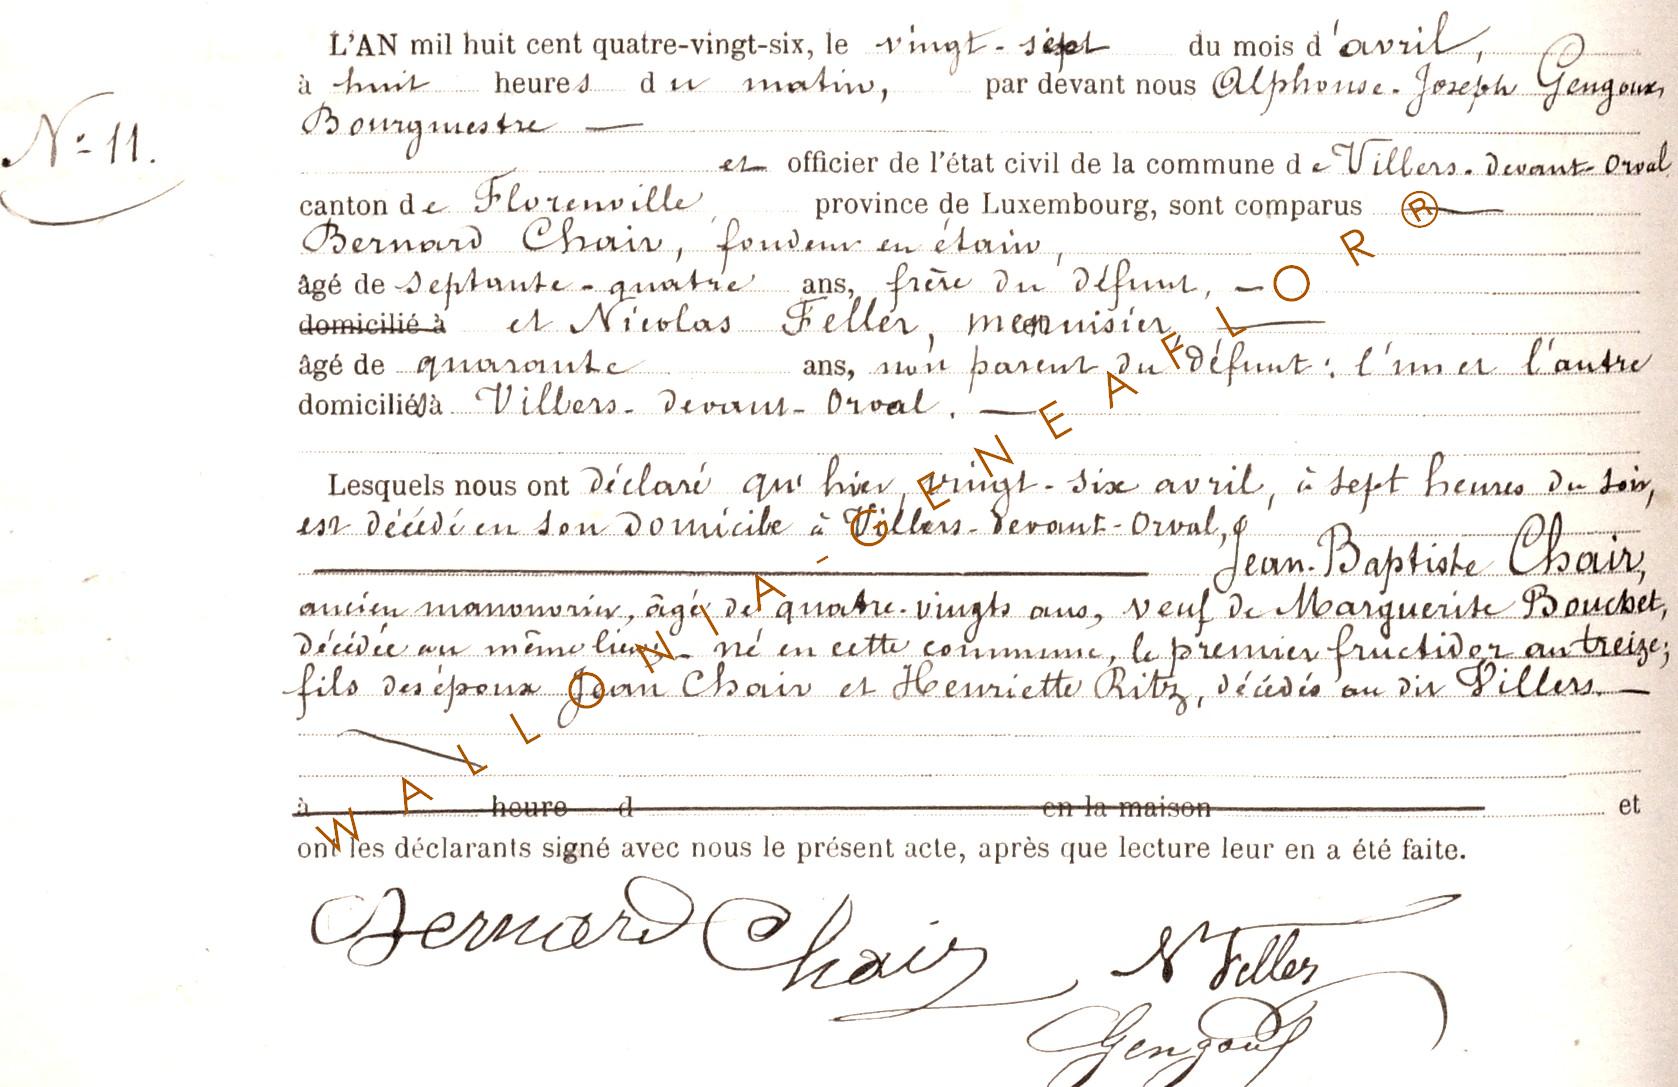 L'AN mil huit cent quatre-vingt-six, le vingt-sept du mois d'avril,
à huit heures du matin, par devant nous Alphonse-Joseph Gengoux,
Bourgmestre —
N° 11.
et officier de l'état civil de la commune de Villers-devant-Orval
canton de Florenville, province de Luxembourg, sont comparus —
Bernard Chair, fondeur en étain,
âgé de septante-quatre ans, frère du défunt, —
domicilié à et Nicolas Feller, menuisier, —
âgé de quarante ans, non parent du défunt: l'un et l'autre
domiciliés à Villers-devant-Orval. —
Lesquels nous ont déclaré qu'hier, vingt-six avril, à sept heures du soir,
est décédé en son domicile à Villers-devant-Orval,
Jean-Baptiste Chair,
ancien manouvrier, âgé de quatre-vingts ans, veuf de Marguerite Bouchet,
décédée au même lieu - né en cette commune, le premier fructidor an treize;
fils des époux Jean Chair et Henriette Ritz, décédés au dit Villers. —
à heure d en la maison et
ont les déclarants signé avec nous le présent acte, après que lecture leur en a été faite.
Bernard Chair
N Feller
Gengoux
WALLONIA-GENEAFLOR®